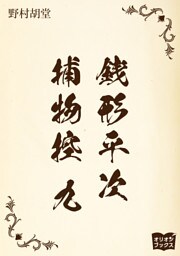 野村胡堂
銭形平次
捕物控 九
オリオン
ブックス